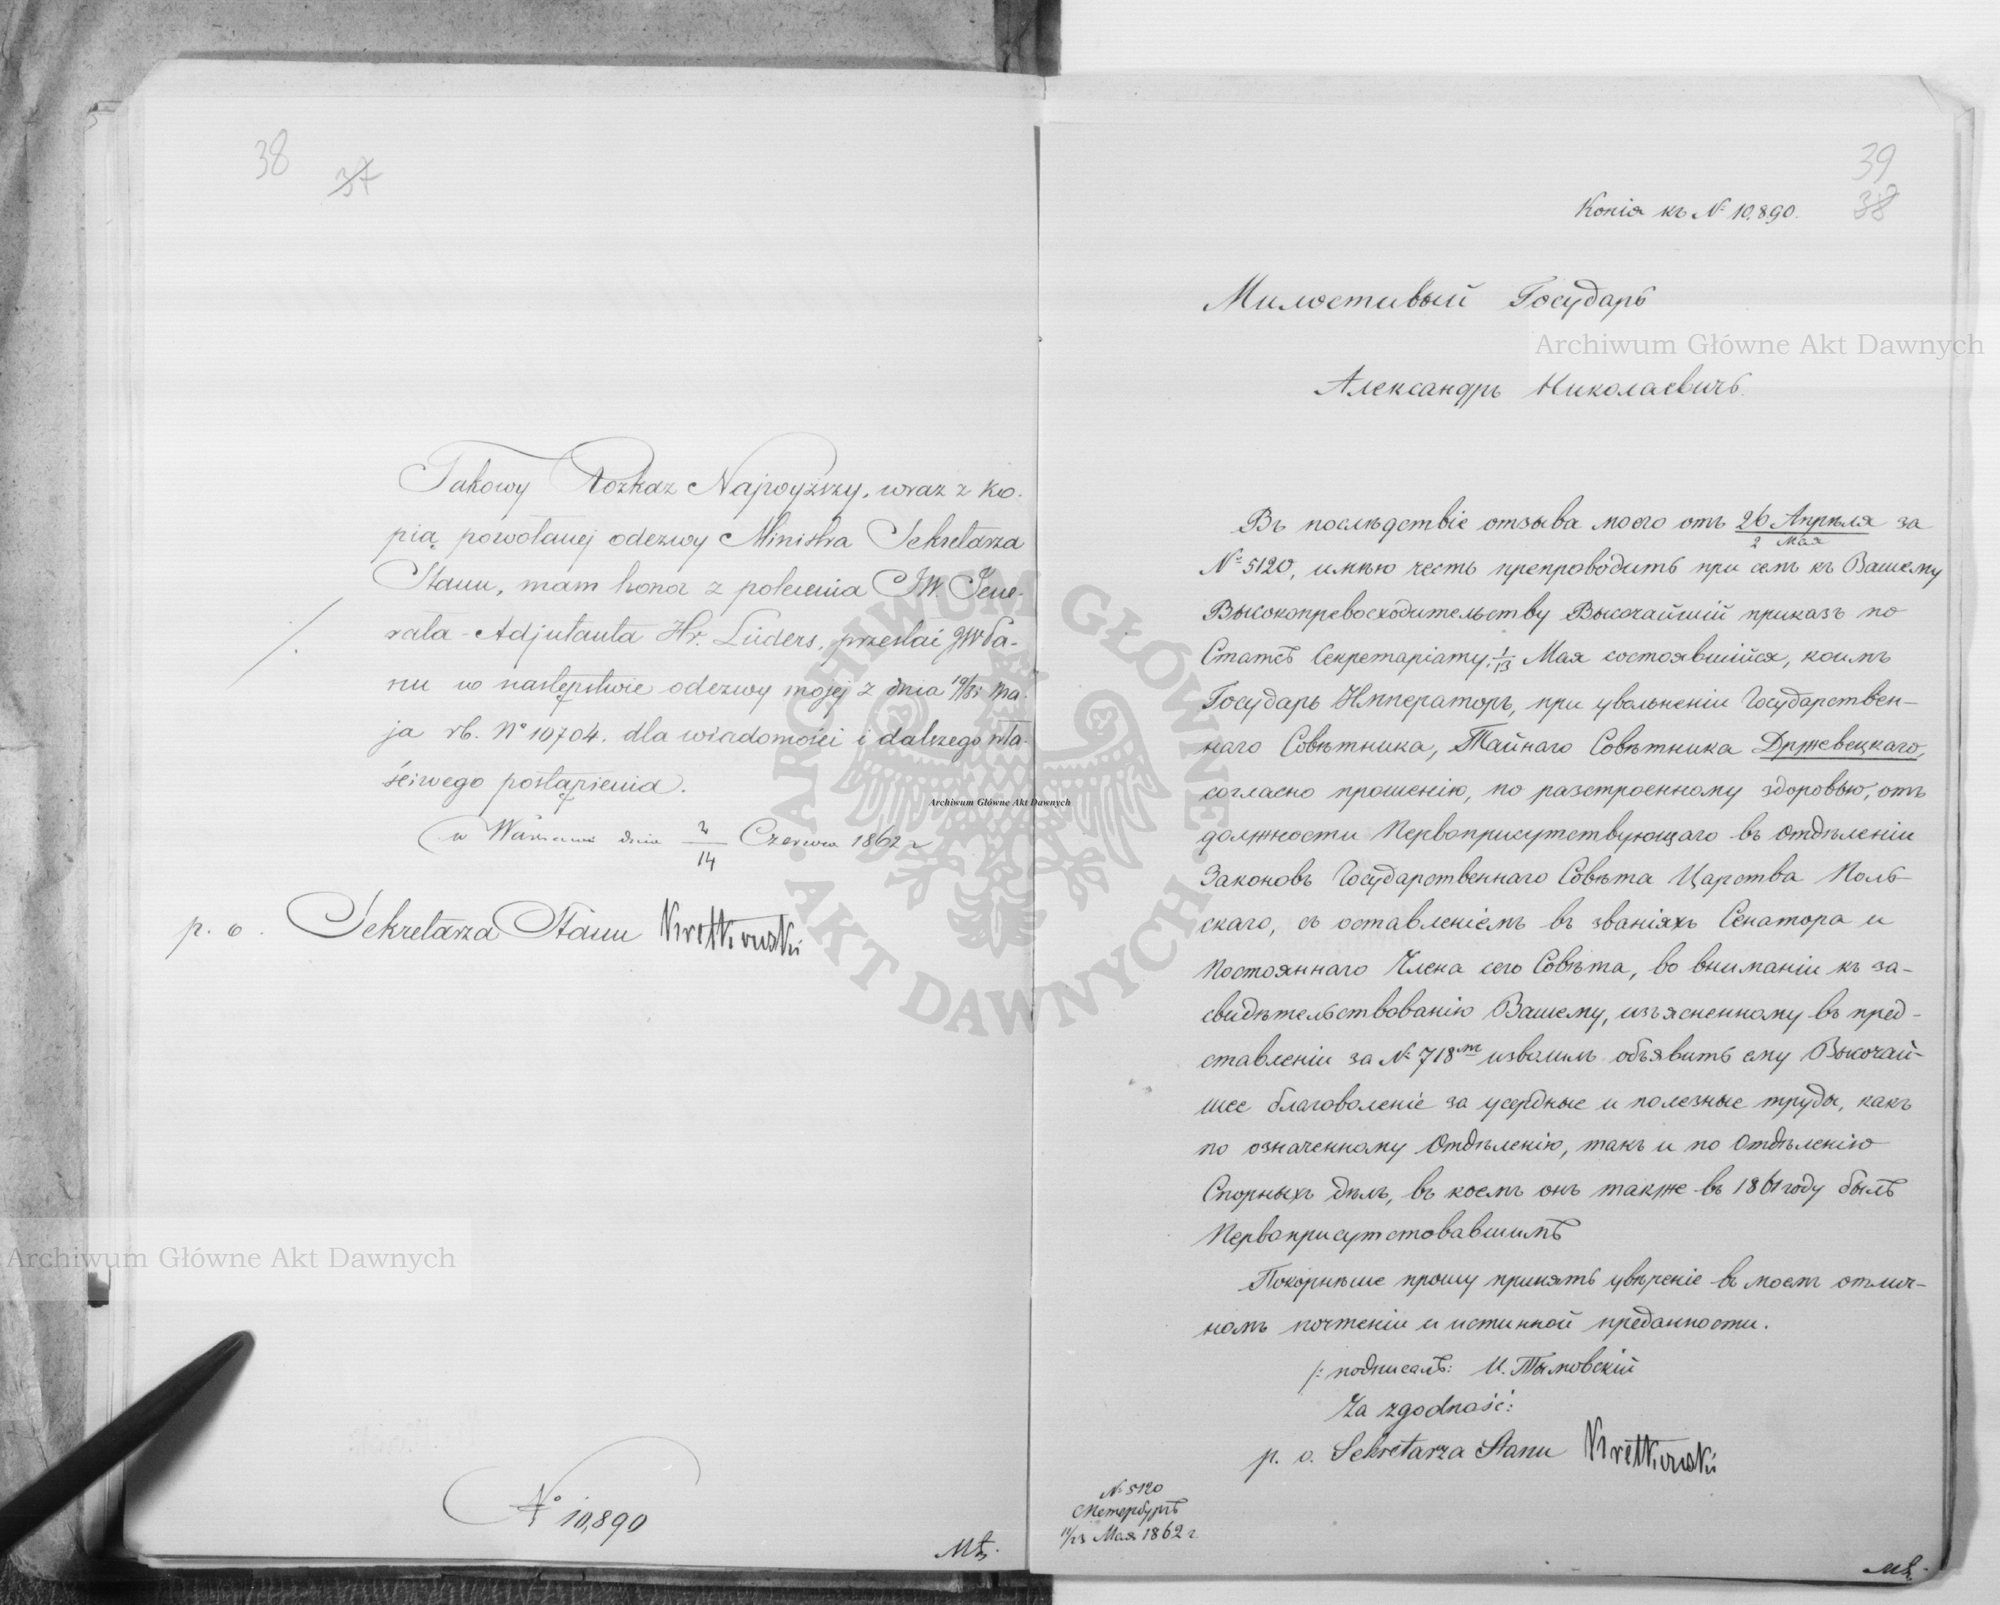 38
37
Takowy Rozkaz Najwyższy, wraz z ko-
pią powołanej odezwy Ministra Sekretarza
Stanu, mam honor z polecenia JW. Jene-
rała-Adjutanta Hr. Lüders, przesłać JW Pa-
nu w następstwie odezwy mojej z dnia 19/31 Ma-
ja rb. No 10704. dla wiadomości i dalszego wła-
ściwego postąpienia.
w Warszawie dnia 2/14 Czerwca 1862 r
p. o. Sekretarza Stanu Krettkowski
No 10,890
39
38
Копія къ № 10,890.
Милостивый Государь
Александръ Николаевичь.
Въ послѣдствіе отзыва моего отъ 26 Апрѣля/2 Мая за
№ 5120, имѣю честь препроводить при семъ къ Вашему
Высокопревосходительству Высочайшій приказъ по
Статсъ Секретаріату, 1/13 Мая состоявшійся, коимъ
Государь Императоръ, при увольненіи Государствен-
наго Совѣтника, Тайнаго Совѣтника Држевецкаго,
согласно прошенію, по разстроенному здоровью, отъ
должности Первоприсутствующаго въ Отдѣленіи
Законовъ Государственнаго Совѣта Царства Поль-
скаго, съ оставленіемъ въ званіяхъ Сенатора и
Постояннаго Члена сего Совѣта, во вниманіи къ за-
свидѣтельствованію Вашему, изъясненному въ пред-
ставленіи за № 718мъ изволилъ объявить ему Высочай-
шее благоволеніе за усердные и полезные труды, какъ
по означенному Отдѣленію, такъ и по Отдѣленію
Спорныхъ дѣлъ, въ коемъ онъ также въ 1861 году былъ
Первоприсутствовавшимъ
Покорнѣше прошу принять увѣреніе въ моемъ отлич-
номъ почтеніи и истинной преданности.
/: подписалъ: И. Тымовскій
Za zgodność:
p. o. Sekretarza Stanu Krettkowski
№ 5120
СПетербургъ
11/23 Мая 1862 г.
Archiwum Główne Akt Dawnych
Archiwum Główne Akt Dawnych
Archiwum Główne Akt Dawnych
ARCHIWUM GŁÓWNE AKT DAWNYCH